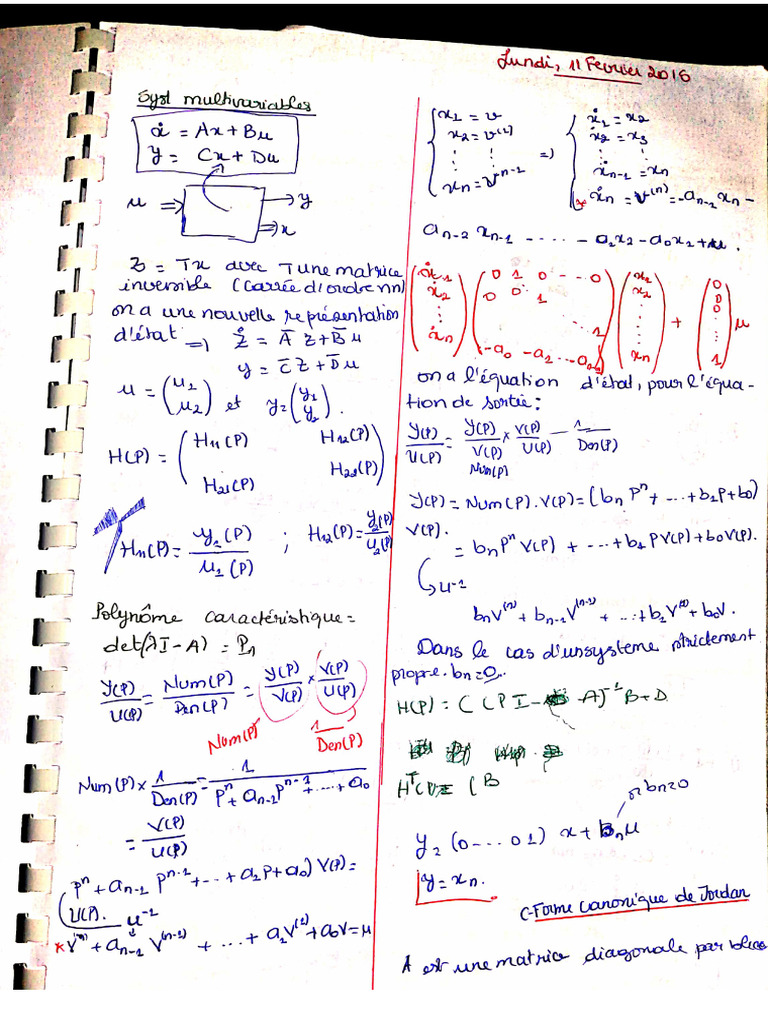 Lundi, 11 Fevrier 2016
Syst multivariables
ẋ = Ax + Bu
y = Cx + Du
u ⇒ → y
⇒ x
Z = Tx avec T une matrice
inversible (carrée d'ordre nn)
on a une nouvelle représentation
d'état ⇒ Ż = A̅ Z + B̅ u
y = C̅ Z + D̅ u
u = (u1 u2) et y = (y1 y2).
H(P) = (H11(P) H12(P)
H21(P) H22(P))
H11(P) = y1(P)/u1(P) ; H12(P) = y1(P)/u2(P)
Polynôme caractéristique =
det(λI - A) = P1
Y(P)/U(P) = Num(P)/Den(P) = Y(P)/V(P) × V(P)/U(P)
Num(P) 1/Den(P)
Num(P) × 1/Den(P) = 1/(P^n + a_n-1 P^n-1 + ... + a0)
= V(P)/U(P)
P^n + a_n-1 P^n-1 + ... + a1P + a0) V(P) =
U(P). u^-1
* V^(n) + a_n-1 V^(n-1) + ... + a1V^(1) + a0V = u
x1 = v
x2 = v^(1)
⋮ ⋮
xn = v^n-1
=> ẋ1 = x2
ẋ2 = x3
⋮ ⋮
ẋn-1 = xn
* ẋn = v^(n) = -a_n-1 xn -
a_n-2 x_n-1 - ... - a1x2 - a0x1 + u.
(ẋ1 ẋ2 ⋮ ẋn) (0 1 0 --- 0
0 0 1
1
-a0 -a1 ... -a_n-1) (x1 x2 ⋮ xn) + (0 0 0 ⋮ 1) u
on a l'équation d'état, pour l'équa-
tion de sortie :
Y(P)/U(P) = Y(P)/V(P) × V(P)/U(P) - 1/Den(P)
Num(P)
Y(P) = Num(P).V(P) = (bn P^n + ... + b1P + b0)
V(P).
= bn P^n V(P) + ... + b1 PV(P) + b0V(P).
u^-1
bnV^(n) + b_n-1V^(n-1) + ... + b1V^(1) + b0V.
Dans le cas d'un systeme strictement
propre. bn = 0.
H(P) = C (P I - A)^-1 B + D
y = (0 --- 0 1) x + bn u
bn = 0
y = xn.
C-Forme canonique de Jordan
A est une matrice diagonale par blocs